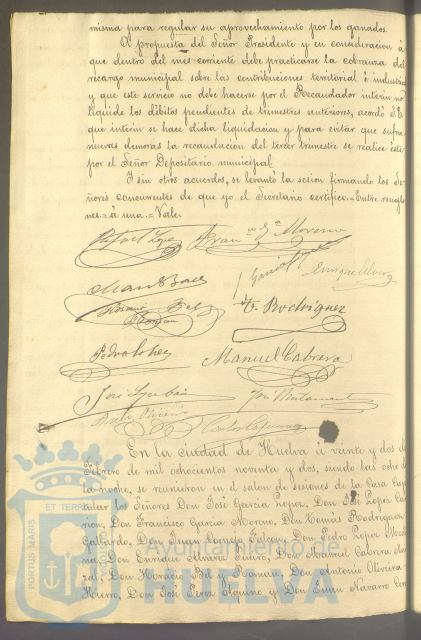 misma para regular su aprovechamiento por los ganados.
A propuesta del Señor Presidente y en consideracion á
que dentro del mes corriente debe practicarse la cobranza del
recargo municipal sobre las contribuciones territorial é industrial
y que este servicio no debe hacerse por el Recaudador interin no
liquide los débitos pendientes de trimestres anteriores, acordó S.E.
que interin se hace dicha liquidacion y para evitar que sufra
nuevas demoras la recaudacion del tercer trimestre se realice ésta
por el Señor Depositario municipal.
Y sin otros acuerdos, se levantó la sesion firmando los Se-
ñores concurrentes de que yo el Secretario certifico.=Entre renglo-
nes.=á una.=Vale.
Rafael Lopez
Fran.co Ga. Moreno
Enrique Alvarez
Horacio Bel
Roman
T. Rodriguez
Pedro Lopez
Manuel Cabrera
José
En la ciudad de Huelva á veinte y dos de
Febrero de mil ochocientos noventa y dos, siendo las ocho de
la noche, se reunieron en el salon de sesiones de la Casa Capi-
tular los Señores Don José García Lopez, Don José Lopez
Don Francisco García Moreno, Don Tomás Rodriguez
Gallardo, Don Juan Cornejo Falcon, Don Pedro Lopez
Don Enrique Alvarez Don Manuel Cabrera
Don Horacio Bel y Roman, Don Antonio Oliveira
Hierro, Don José Perez y Don Juan Navarro
ET TERRÆ
PORTUS MARIS
Ayuntamiento de
HUELVA